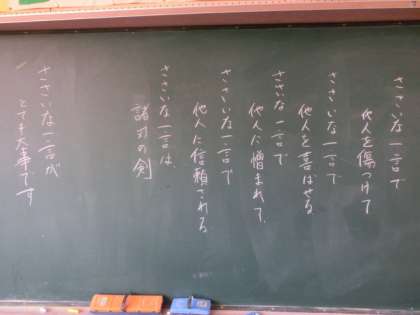 ささいな一言で
他人を傷つけて
ささいな一言で
他人を喜ばせる
ささいな一言で
他人に憎まれて、
ささいな一言で
他人に信頼される
ささいな一言は、
諸刃の剣
ささいな一言が
とても大事です